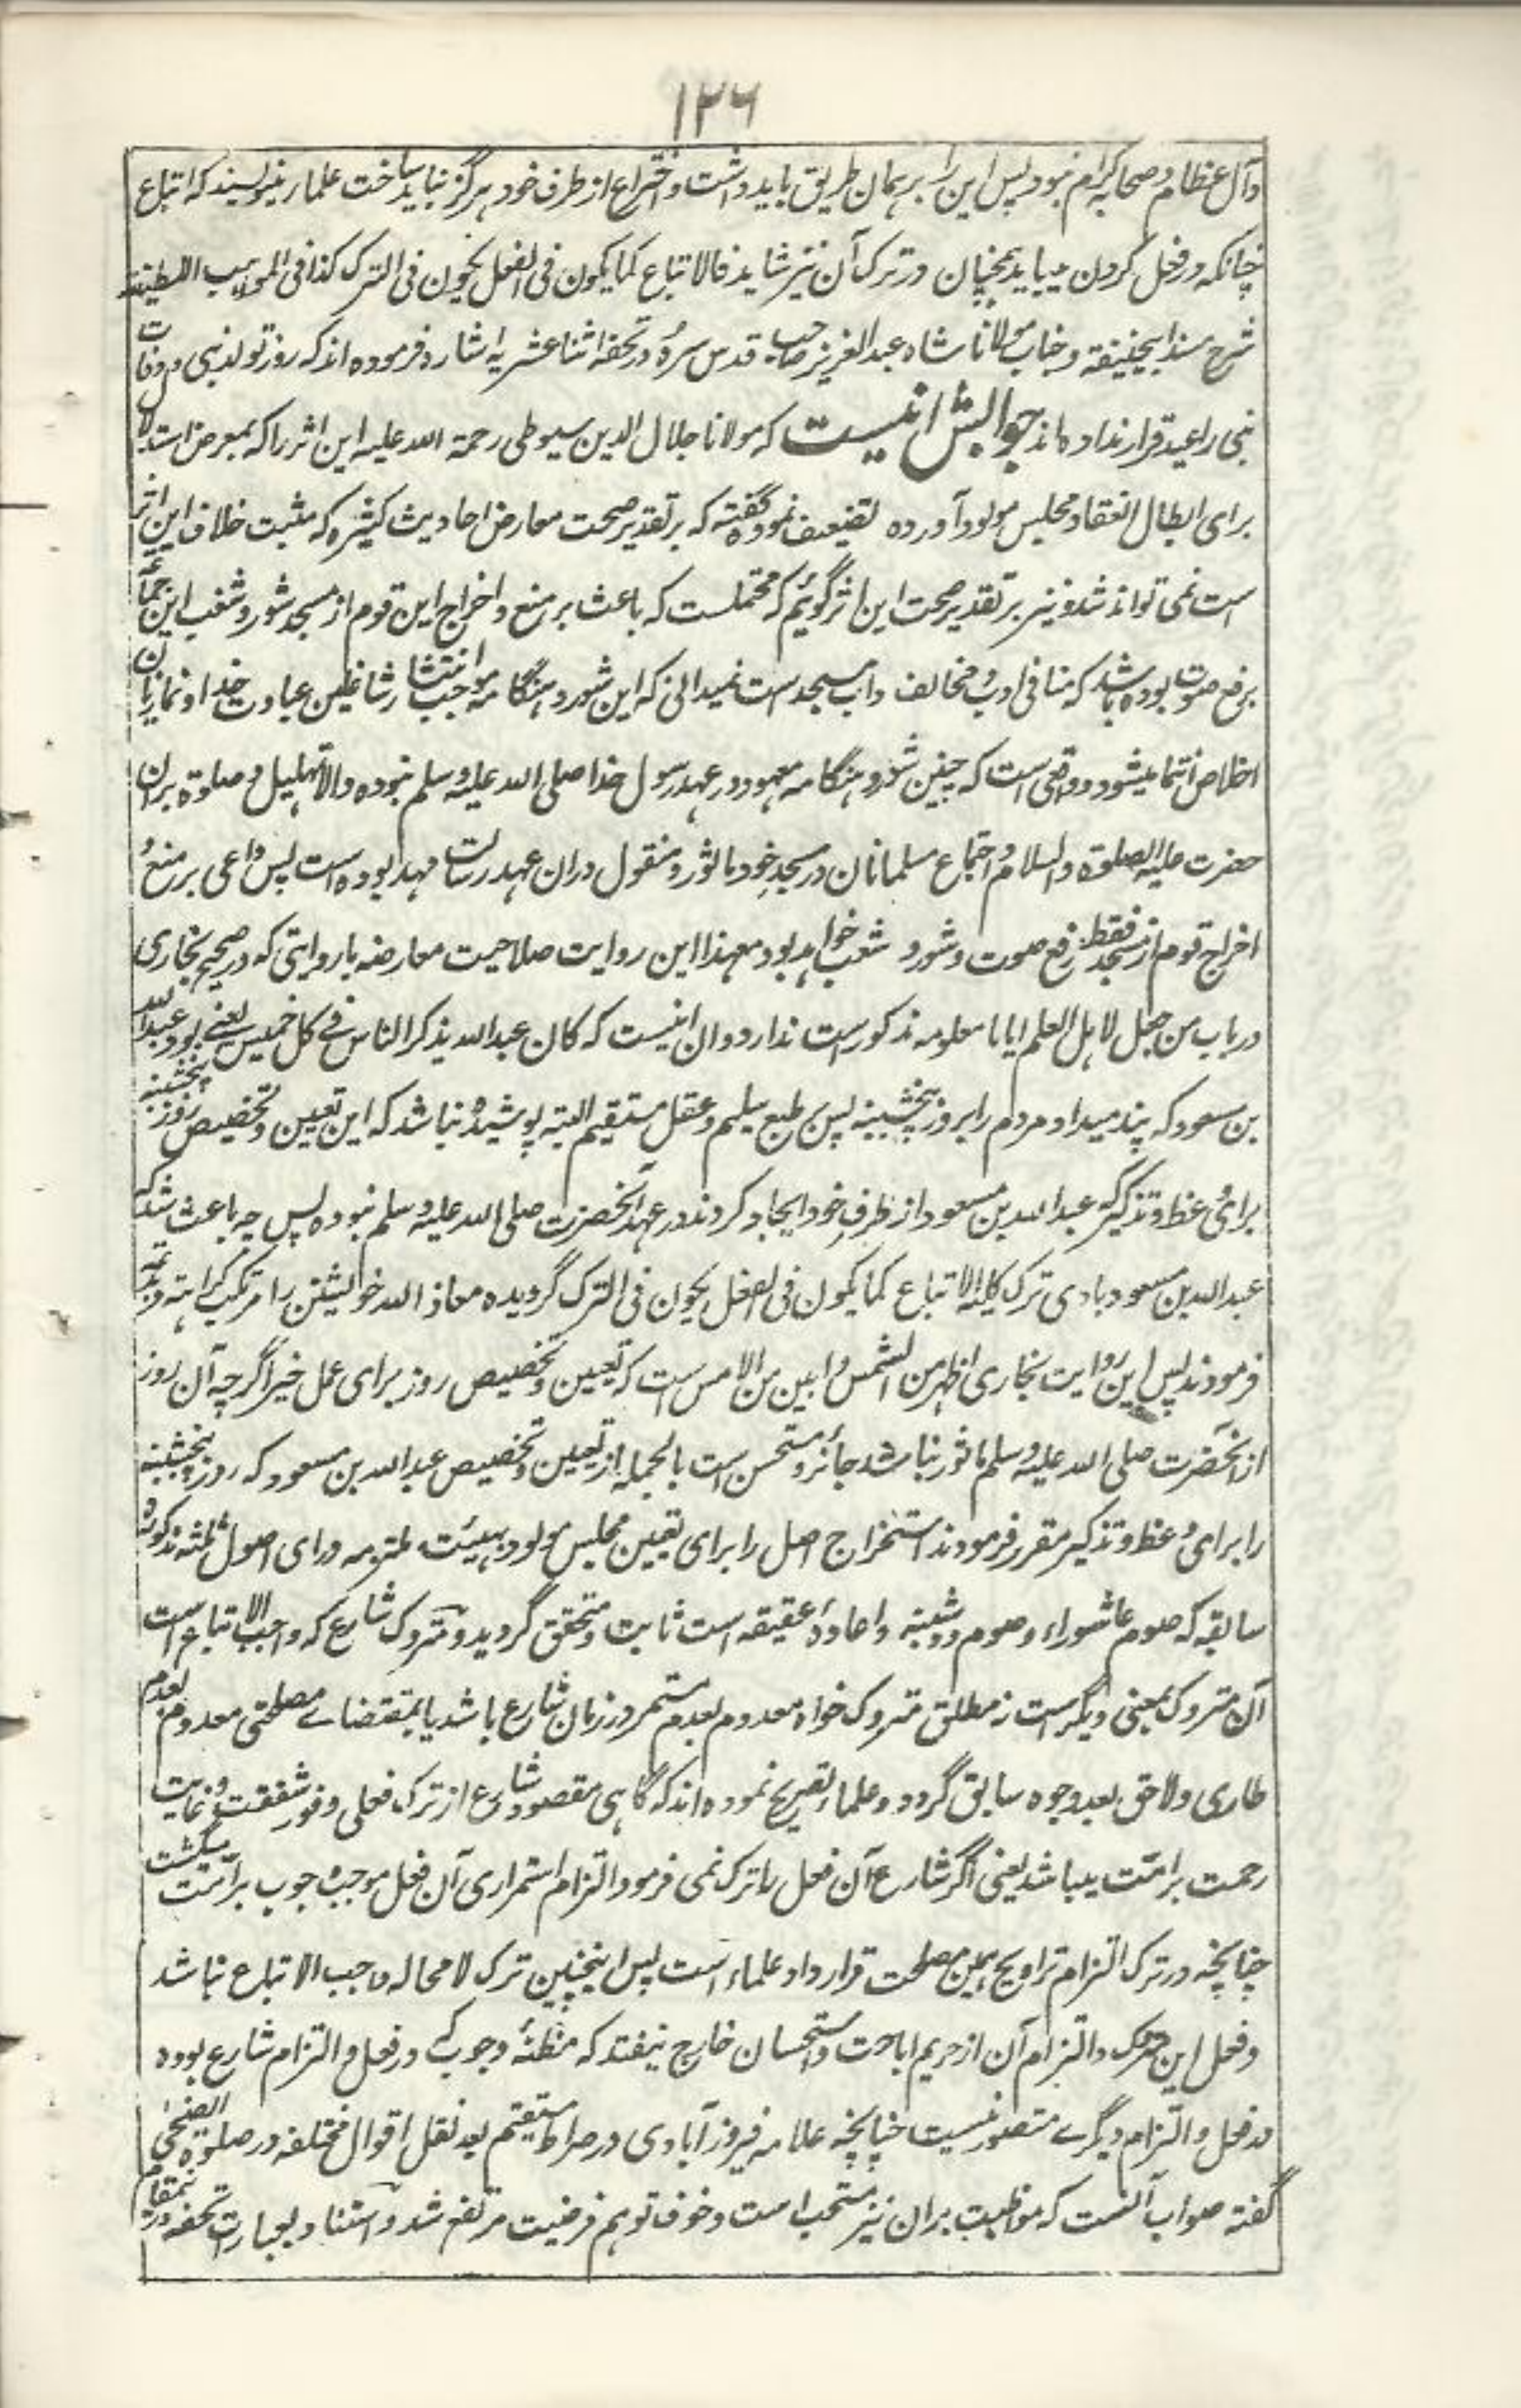 ۱۲۶
وآل عظام وصحابہ کرام نبود پس این را بر ہمان طریق باید داشت واختراع از طرف خود ہرگز نباید ساخت علما مینویسند کہ اتباع
چنانکہ در فعل کردن میباید ہمچنان در ترک آن نیز شاید فالاتباع کما یکون فی الفعل یکون فی الترک کذا فی المواہب اللطیفة
شرح مسند ابیحنیفة وجناب مولانا شاہ عبد العزیز صاحب قدس سرہ در تحفہ اثنا عشریہ اشارہ فرمودہ اند کہ روز تولد نبی ووفات
نبی را عید قرار ندادہ اند جوابش اینست کہ مولانا جلال الدین سیوطی رحمة اللہ علیہ این اثر را کہ بمعرض استدلال
برای ابطال انعقاد مجلس مولود آوردہ تضعیف نمودہ گفتہ کہ بر تقدیر صحت معارض احادیث کثیرہ کہ مثبت خلاف این اثر
است نمی تواند شد ونیز بر تقدیر صحت این اثر گوئیم کہ محتملست کہ باعث بر منع واخراج این قوم از مسجد شور وشغب این جماعہ
برفع صوت بودہ باشد کہ منافی ادب ومخالف داب مسجد است نمیدانی کہ این شور وہنگامہ موجب انتشار شاغلین عبادت خدا ونمازیان
اخلاص انتما میشود وواقعی است کہ چنین شور وہنگامہ معہود در عہد رسول خدا صلی اللہ علیہ وسلم نبودہ والا تہلیل وصلوة بران
حضرت علیہ الصلوة والسلام واجتماع مسلمانان در مسجد خود ماثور ومنقول دران عہد رسالت مہد بودہ است پس داعی بر منع و
اخراج قوم از مسجد فقط رفع صوت وشور وشغب خواہد بود معہذا این روایت صلاحیت معارضہ با روایتی کہ در صحیح بخاری
در باب من جعل لاہل العلم ایاما معلومہ مذکور است ندارد وان اینست کہ کان عبد اللہ یذکر الناس فے کل خمیس یعنے بود عبد اللہ
بن مسعود کہ پند میداد مردم را بروز پنجشنبہ پس بر طبع سلیم وعقل مستقیم البتہ پوشیدہ نباشد کہ این تعیین وتخصیص روز پنجشنبہ
برای وعظ وتذکیر عبد اللہ بن مسعود از طرف خود ایجاد کردند در عہد آنحضرت صلی اللہ علیہ وسلم نبودہ پس چہ باعث شد کہ
عبد اللہ بن مسعود بادی ترک کلیہ الاتباع کما یکون فی الفعل یکون فی الترک گردیدہ معاذ اللہ خویشتن را مرتکب کراہتہ وبدعتہ
فرمودند پس این روایت بخاری اظہر من الشمس وابین من الامس است کہ تعیین وتخصیص روز برای عمل خیر اگرچہ آن روز
از آنحضرت صلی اللہ علیہ وسلم ماثور نباشد جائز ومستحسن است بالجملہ از تعیین وتخصیص عبد اللہ بن مسعود کہ روز پنجشنبہ
را برای وعظ وتذکیر مقرر فرمودند استخراج اصل را برای تعیین مجلس مولود بہیئت ملتزمہ ورای اصول ثلثہ مذکورہ
سابقہ کہ صوم عاشوراء وصوم دوشنبہ واعادۂ عقیقہ است ثابت ومتحقق گردید ومتروک شارع کہ واجب الاتباع است
آن متروک بمعنی دیگرست نہ مطلق متروک خواہ معدوم بعدم مستمر در زمان شارع باشد یا بمقتضاے مصلحتی معدوم بعدم
طاری ولاحق بعد وجود سابق گردد وعلماء تصریح نمودہ اند کہ گاہی مقصود شارع از ترک فعلی وفور شفقت وغایت
رحمت بر امت میباشد یعنی اگر شارع آن فعل را ترک نمی فرمود التزام استمراری آن فعل موجب وجوب بر امت میگشت
چنانچہ در ترک التزام تراویح ہمین مصلحت قرارداد علماء است پس اینچنین ترک لا محالہ واجب الاتباع نباشد
وفعل این متروک والتزام آن از حریم اباحت واستحسان خارج نیفتد کہ مظنۂ وجوب کے در فعل والتزام شارع بودہ
در فعل والتزام دیگرے متصور نیست چنانچہ علامہ فیروزآبادی در صراط مستقیم بعد نقل اقوال مختلفہ در صلوة الضحی
گفتہ صواب آنست کہ مواظبت بران نیز مستحب است وخوف توہم فرضیت مرتفع شد واستناد بعبارت تحفہ درینمقام